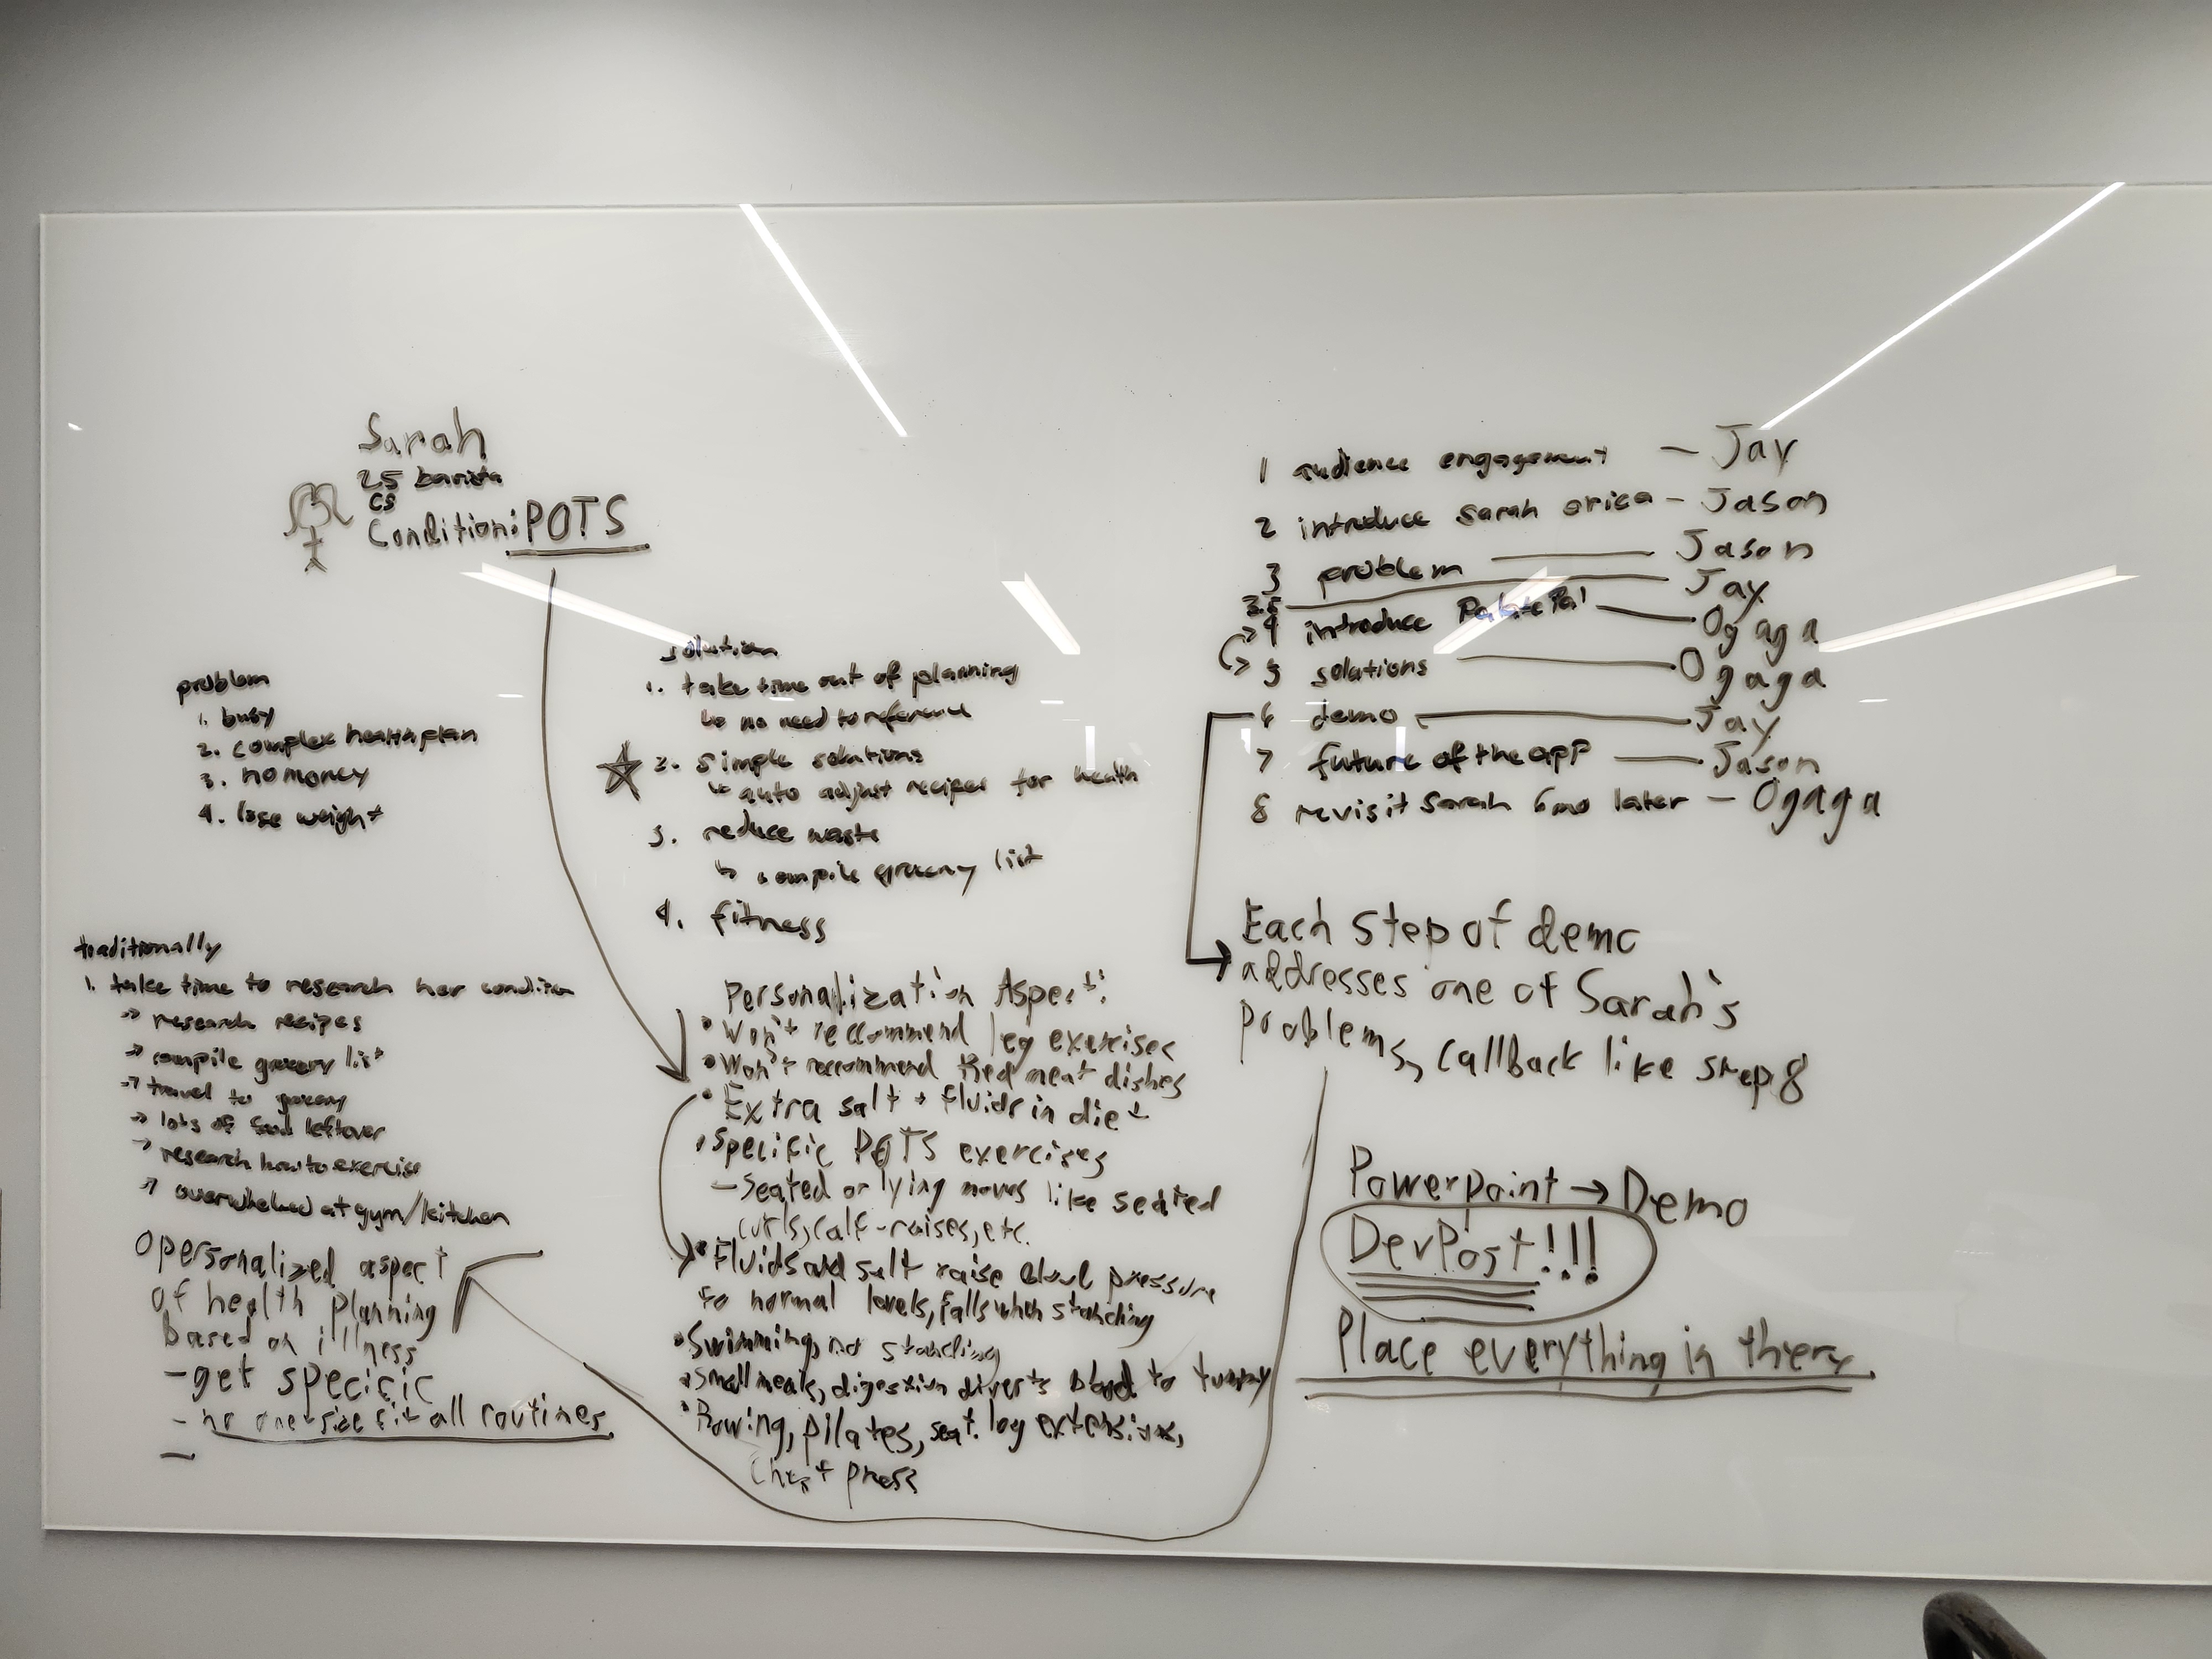 Sarah
25 barista
CS
Condition: POTS
problem
1. busy
2. complex health plan
3. no money
4. lose weight
traditionally
1. take time to research her condition
→ research recipes
→ compile grocery list
→ travel to grocery
→ lots of food leftover
→ research how to exercise
→ overwhelmed at gym/kitchen
personalized aspect
of health planning
based on illness
- get specific
- no one size fit all routines
-
solution
1. take time out of planning
↳ no need to reference
2. simple solutions
↳ auto adjust recipes for health
3. reduce waste
↳ compile grocery list
4. fitness
Personalization Aspect:
• Won't recommend leg exercises
• Won't recommend Red meat dishes
• Extra salt + fluids in diet
• Specific POTS exercises
- Seated or lying moves like seated
curls, calf-raises, etc.
• Fluids and salt raise blood pressure
to normal levels, falls when standing
• Swimming, no standing
• Small meals, digestion diverts blood to tummy
• Rowing, pilates, seat. leg extensions,
Chest press
1 audience engagement — Jay
2 introduce Sarah erica - Jason
3 problem — Jason
3.5 — Jay
4 introduce PalatePal — Ogaga
5 solutions — Ogaga
6 demo — Jay
7 future of the app — Jason
8 revisit Sarah 6mo later - Ogaga
Each step of demo
addresses one of Sarah's
problems, callback like step 8
Powerpoint → Demo
DevPost!!!
Place everything in there